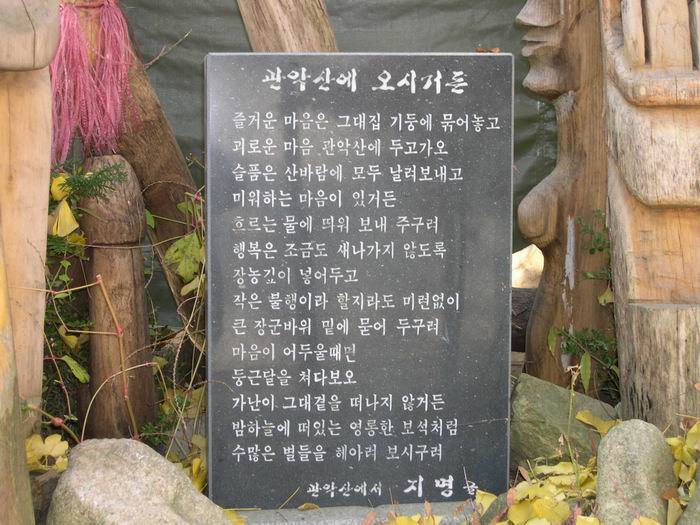 관악산에 오시거든
즐거운 마음은 그대집 기둥에 묶어놓고
괴로운 마음 관악산에 두고가오
슬픔은 산바람에 모두 날려보내고
미워하는 마음이 있거든
흐르는 물에 띄워 보내 주구려
행복은 조금도 새나가지 않도록
장농깊이 넣어두고
작은 불행이라 할지라도 미련없이
큰 장군바위 밑에 묻어 두구려
마음이 어두울때면
둥근달을 쳐다보오
가난이 그대곁을 떠나지 않거든
밤하늘에 떠있는 영롱한 보석처럼
수많은 별들을 헤아려 보시구려
관악산에서 지명